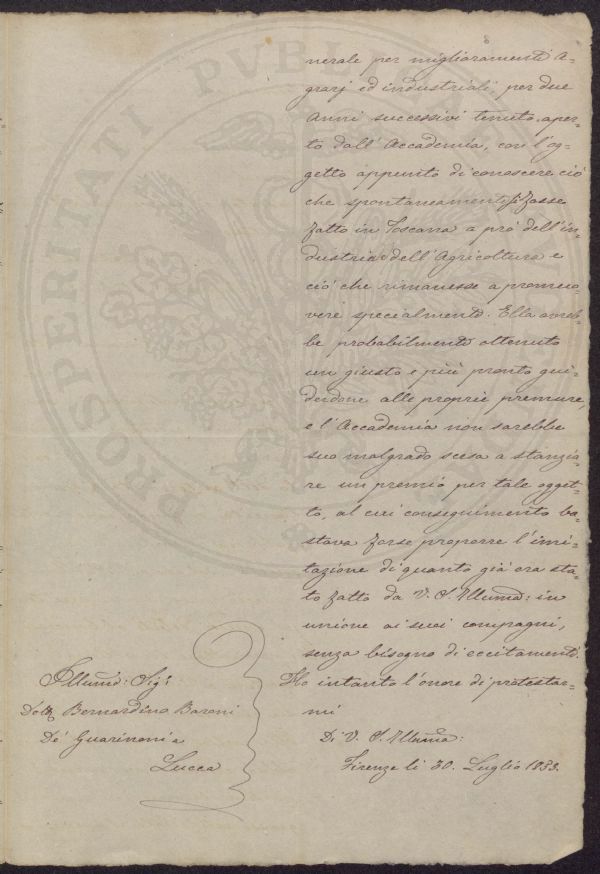 nerale per miglioramenti A-
grarj ed industriali, per due
Anni successivi tenuto aper-
to dall' Accademia, con l'og-
getto appunto di conoscere ciò
che spontaneamente si fosse
fatto in Toscana a prò dell'in-
dustria dell' Agricoltura e
ciò che rimanesse a promuo-
vere specialmente. Ella avreb-
be probabilmente ottenuto
un giusto e più pronto gui-
derdone alle proprie premure,
e l'Accademia non sarebbe
suo malgrado scesa a stanzia-
re un premio per tale ogget-
to, al cui conseguimento ba-
stava forse proporre l'imi-
tazione di quanto già era sta-
to fatto da V. S. Illuma: in
unione ai suoi compagni,
senza bisogno di eccitamenti.
Ho intanto l'onore di protestar-
mi
Di V. S. Illuma:
Firenze li 30. Luglio 1833.
Illumo: Sigr
Dottr Bernardino Baroni
De' Guarinoni a
Lucca
PROSPERITATI PVBLICAE